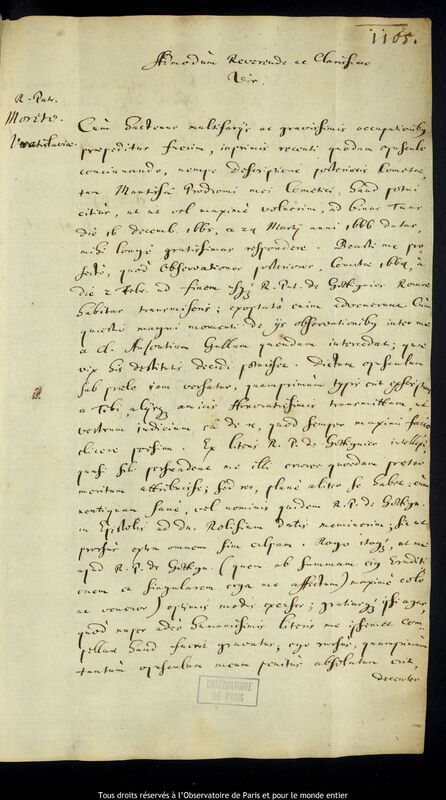 1165.
Admodum Reverende ac Clarissime
Vir.
R. Patr.
Moreto.
Vratislaviae.
Cum hactenus multifarijs ac gravissimis occupationibus
praepeditus fuerim, inprimis recenti quodam opusculo
concinnando, nempe descriptione posterioris Cometae,
tum Mantissâ Prodromi mei Cometici, haud potui
citius, ac ut vel maximè voluerim, ad binas Tuas
die 16 decemb. 1665, ac 24 Martij anni 1666 datas,
mihi longè gratissimas respondere. Beasti me pro-
fectò, quòd Observationes posteriores, Cometae 1664, à
die 2 Febr. ad finem usque, R. Pat. de Gottignier Romae
habitas transmiseris; exoptatò enim advenerunt. Cùm
quaestio magni momenti de ijs observationibus inter me
ac Cl. Ausontium Gallum quendam intercedat; quae
vix his destitutis decidi potuisset. Dictum opusculum
sub prelo iam versatur, quamprimum typis erit exscriptum
a Tibi alijsque amicis Honoratissimis transmittam ut
vestrum iudicium ea de re, quod semper maximi facio
elicere possim. Ex literis R. P. de Gottignier intellexi,
quasi sibi persuadeat me illi errores quosdam praeter
meritum attribuisse; sed res, planè aliter se habet; cùm
nentiquam sanè, vel nominis quidem R. P. de Gottign.
in Epistolis ad dn. Robisium datis meminerim; sic ut
prorsus extra omnem sim culpam. Rogo itaque, ut me
apud R. P. de Gottign. (quem ob summam eius Eruditi-
onem ac singularem erga me affectum) maximè colo
ac veneror) optimis modis excuses; gratiasque ipsi agas,
quòd nuper adeò humanissimis literis me ipsemet com-
pellare haud fuerit gravatus; ego rursùs, quamprimùm
tantùm opusculum meum penitus absolutum erit,
decenter
OBSERVATOIRE
DE PARIS
Tous droits réservés à l'Observatoire de Paris et pour le monde entier